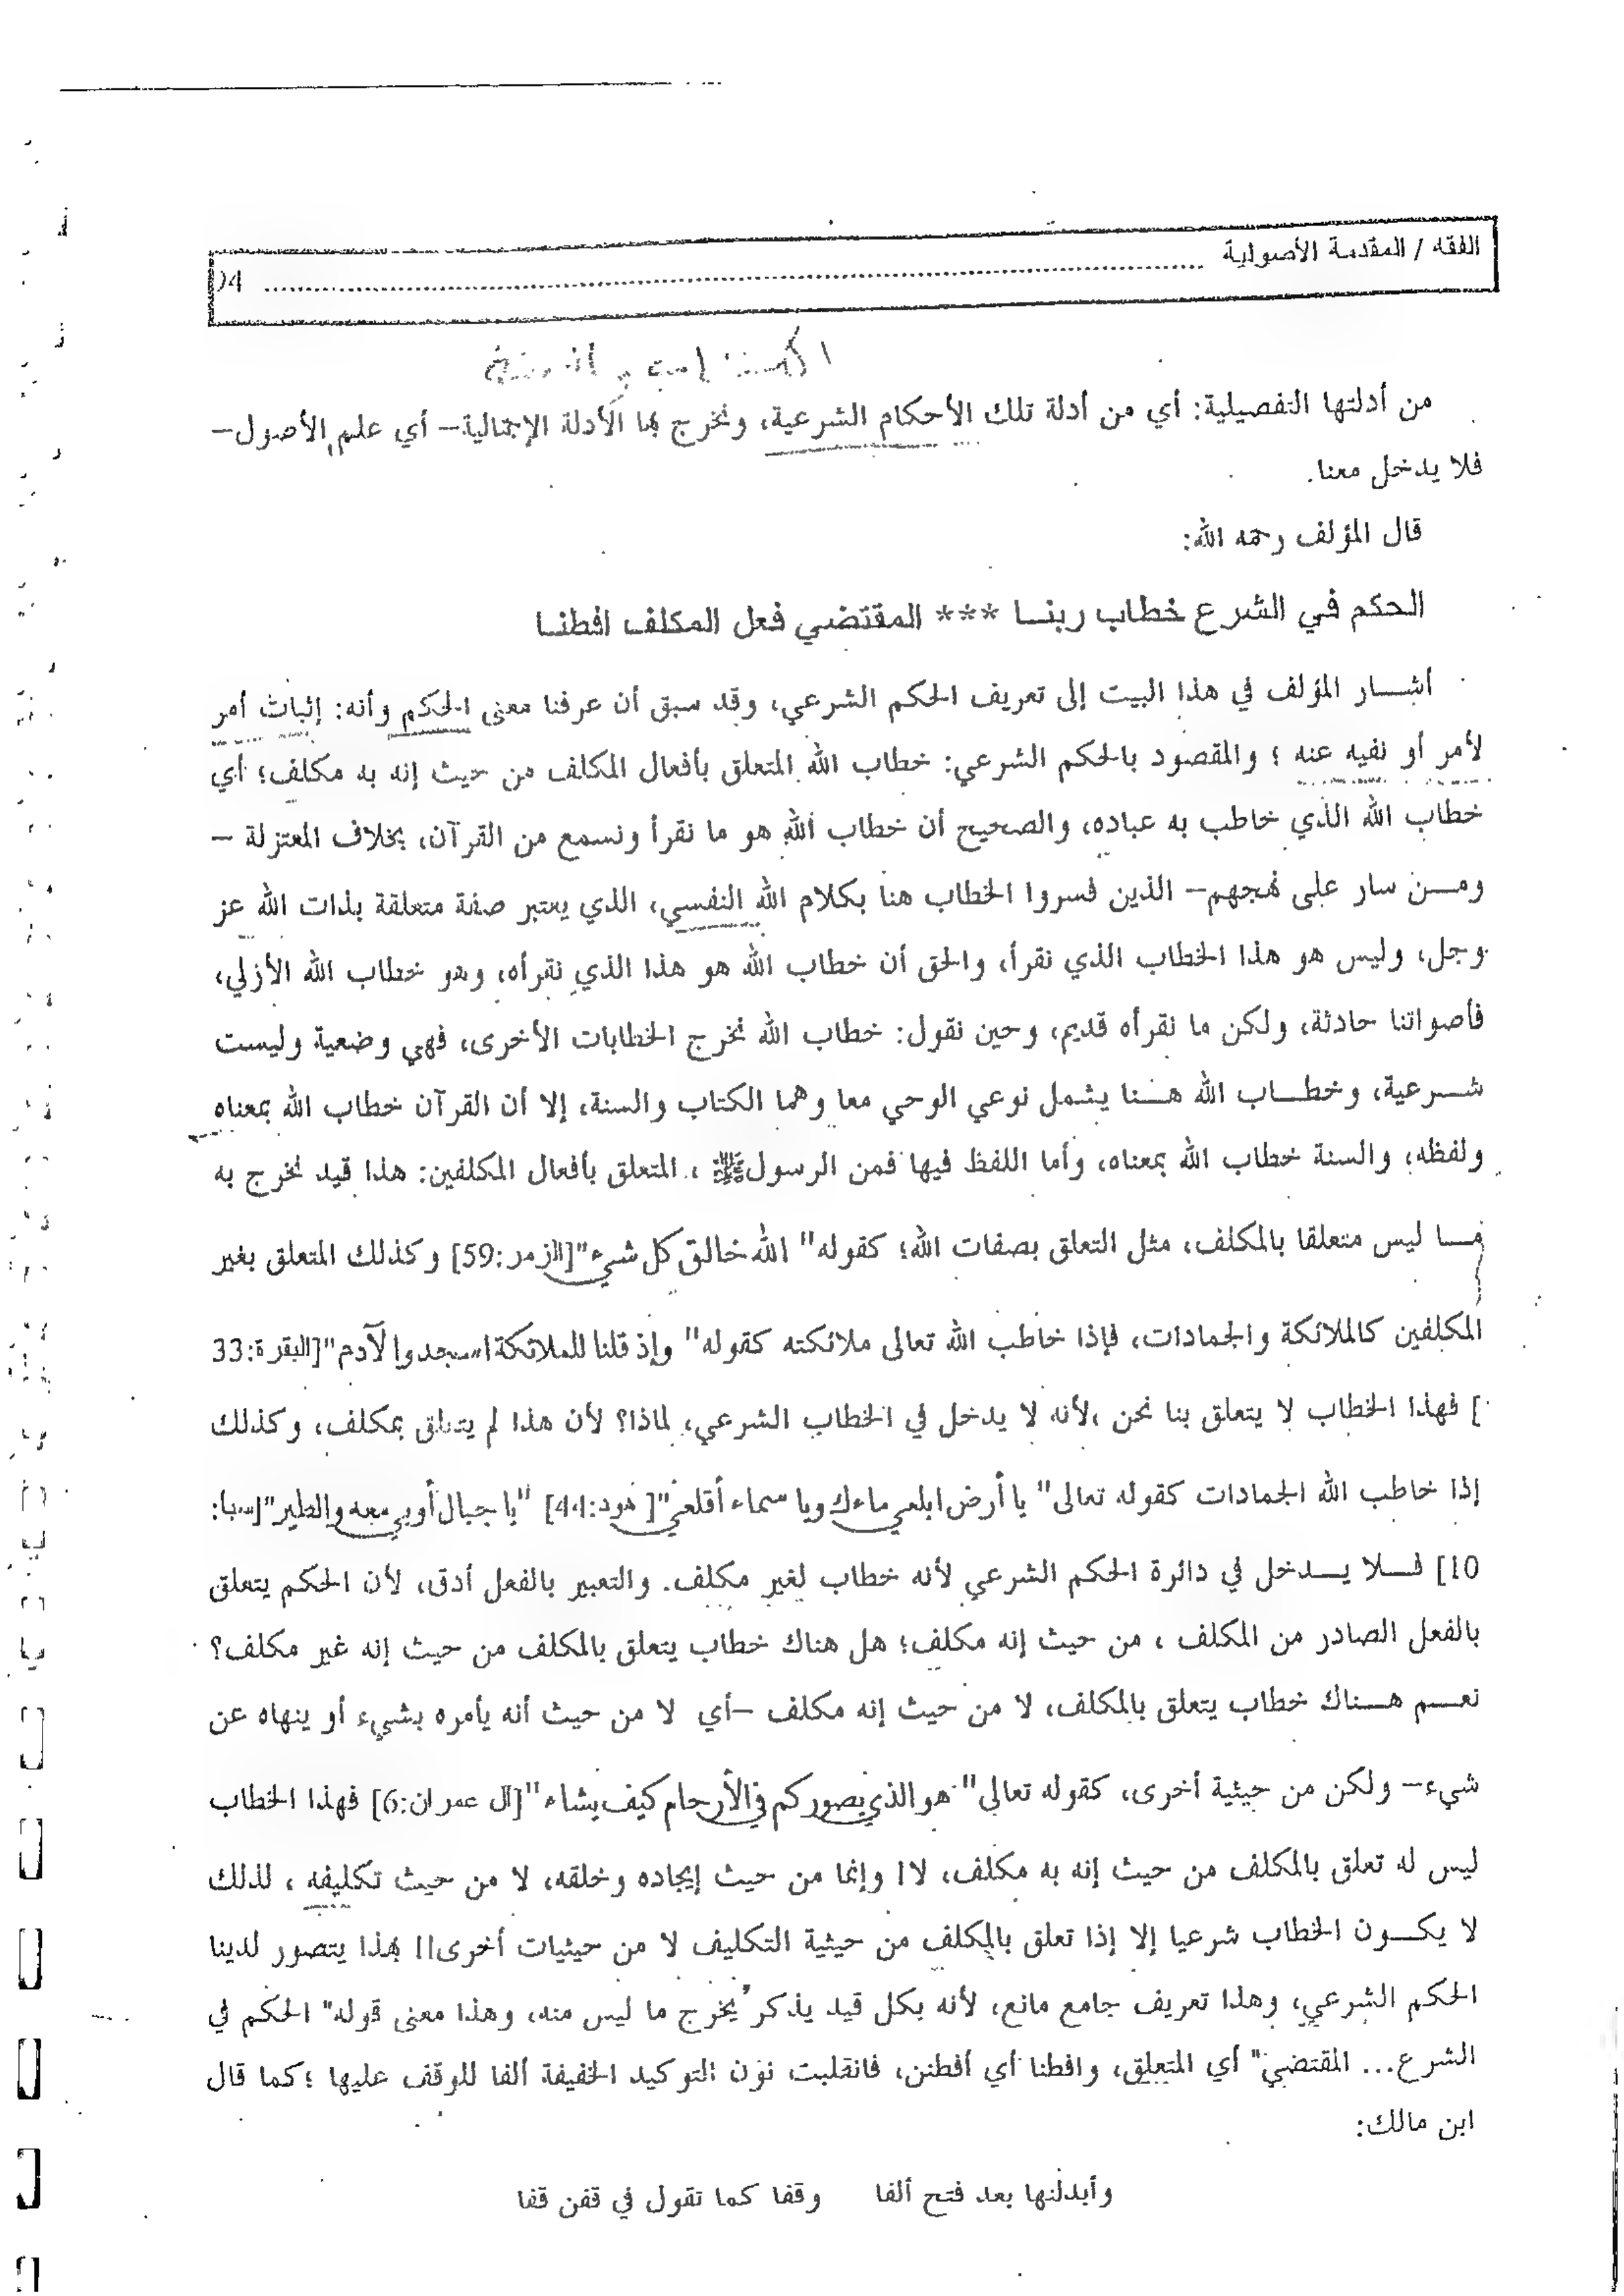 الفقه / المقدمة الأصولية ........................................ 04
من أدلتها التفصيلية: أي من أدلة تلك الأحكام الشرعية، ونخرج بها الأدلة الإجمالية– أي علم الأصول–
فلا يدخل معنا.
قال المؤلف رحمه الله:
الحكم في الشرع خطاب ربنـا *** المقتضي فعل المكلف افطنـا
أشـــار المؤلف في هذا البيت إلى تعريف الحكم الشرعي، وقد سبق أن عرفنا معنى الحكم وأنه: إثبات أمر
لأمر أو نفيه عنه ؛ والمقصود بالحكم الشرعي: خطاب الله المتعلق بأفعال المكلف من حيث إنه به مكلف؛ أي
خطاب الله الذي خاطب به عباده، والصحيح أن خطاب الله هو ما نقرأ ونسمع من القرآن، بخلاف المعتزلة –
ومــن سار على نهجهم– الذين فسروا الخطاب هنا بكلام الله النفسي، الذي يعتبر صفة متعلقة بذات الله عز
وجل، وليس هو هذا الخطاب الذي نقرأ، والحق أن خطاب الله هو هذا الذي نقرأه، وهو خطاب الله الأزلي،
فأصواتنا حادثة، ولكن ما نقرأه قديم، وحين نقول: خطاب الله نخرج الخطابات الأخرى، فهي وضعية وليست
شـــرعية، وخطـــاب الله هـــنا يشمل نوعي الوحي معا وهما الكتاب والسنة، إلا أن القرآن خطاب الله بمعناه
ولفظه؛ والسنة خطاب الله بمعناه، وأما اللفظ فيها فمن الرسول ﷺ ، المتعلق بأفعال المكلفين: هذا قيد نخرج به
مـــا ليس متعلقا بالمكلف، مثل التعلق بصفات الله؛ كقوله" الله خالق كل شيء"[الزمر:59] وكذلك المتعلق بغير
المكلفين كالملائكة والجمادات، فإذا خاطب الله تعالى ملائكته كقوله" وإذ قلنا للملائكة اسجدوا لآدم"[البقرة:33
] فهذا الخطاب لا يتعلق بنا نحن ،لأنه لا يدخل في الخطاب الشرعي، لماذا؟ لأن هذا لم يتعلق بمكلف، وكذلك
إذا خاطب الله الجمادات كقوله تعالى" يا أرض ابلعي ماءك ويا سماء أقلعي"[هود:44] "يا جبال أوبي معه والطير"[سبأ:
10] فـــلا يـــدخل في دائرة الحكم الشرعي لأنه خطاب لغير مكلف. والتعبير بالفعل أدق، لأن الحكم يتعلق
بالفعل الصادر من المكلف ، من حيث إنه مكلف؛ هل هناك خطاب يتعلق بالمكلف من حيث إنه غير مكلف؟
نعـــم هـــناك خطاب يتعلق بالمكلف، لا من حيث إنه مكلف –أي لا من حيث أنه يأمره بشيء أو ينهاه عن
شيء– ولكن من حيثية أخرى، كقوله تعالى" هو الذي يصوركم في الأرحام كيف يشاء"[آل عمران:6] فهذا الخطاب
ليس له تعلق بالمكلف من حيث إنه به مكلف، لا! وإنما من حيث إيجاده وخلقه، لا من حيث تكليفه ، لذلك
لا يكـــون الخطاب شرعيا إلا إذا تعلق بالمكلف من حيثية التكليف لا من حيثيات أخرى!! بهذا يتصور لدينا
الحكم الشرعي، وهذا تعريف جامع مانع، لأنه بكل قيد يذكر يخرج ما ليس منه، وهذا معنى قوله" الحكم في
الشرع... المقتضي" أي المتعلق، وافطنا أي أفطنن، فانقلبت نون التوكيد الخفيفة ألفا للوقف عليها ؛كما قال
ابن مالك:
وأبدلنها بعد فتح ألفا    وقفا كما تقول في قفن قفا